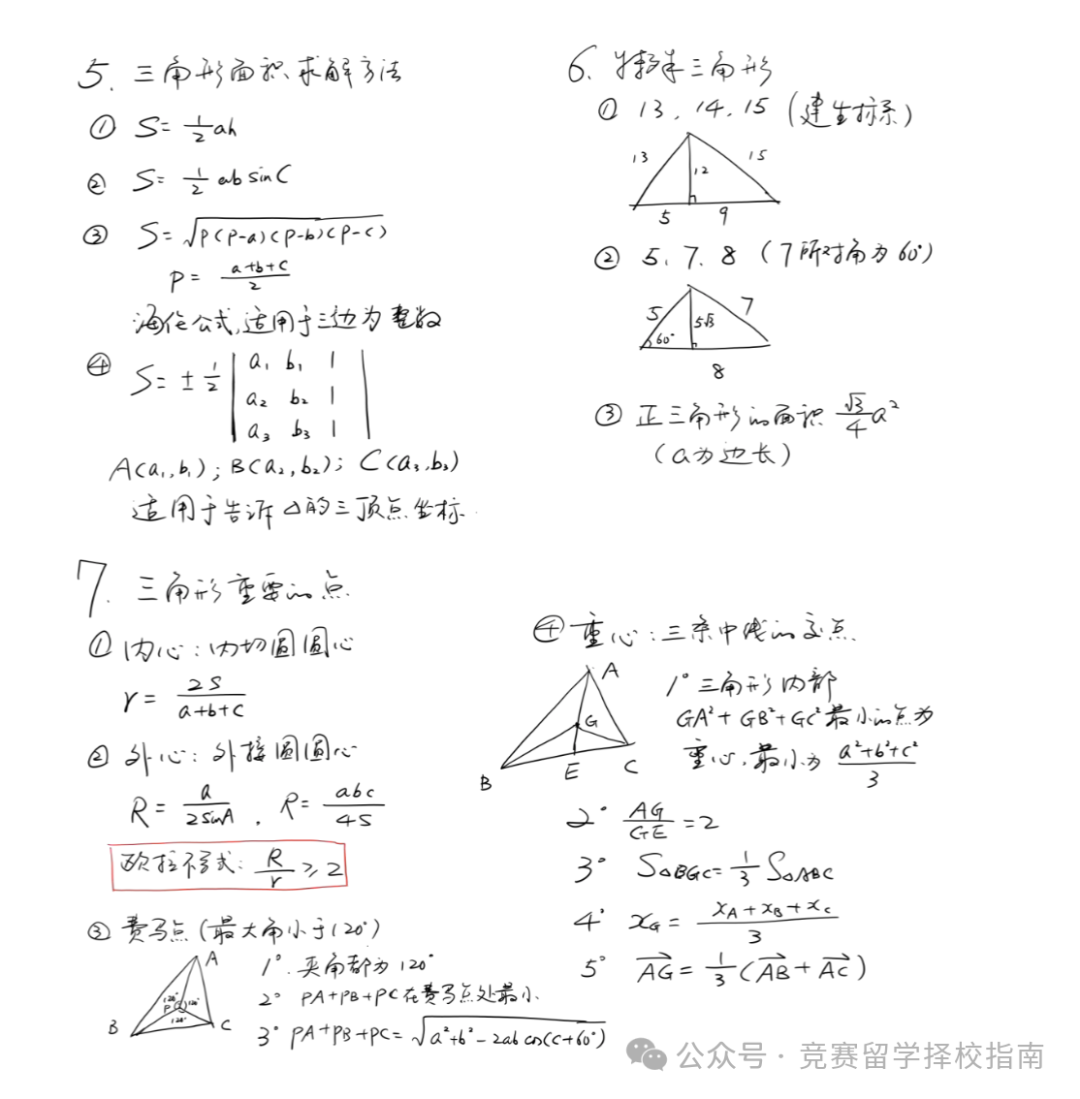 5. 三角形面积求解方法
① S= 1/2 ah
② S= 1/2 ab sin C
③ S=√P(P-a)(P-b)(P-c)
P= (a+b+c)/2
海伦公式,适用于三边为整数
④ S= ± 1/2 | a₁ b₁ 1 |
a₂ b₂ 1
a₃ b₃ 1
A(a₁,b₁); B(a₂,b₂); C(a₃,b₃)
适用于告诉△的三顶点坐标.
6. 特殊三角形
① 13, 14, 15 (建坐标系)
13 12 15
5 9
② 5, 7, 8 (7所对角为60°)
5 5√3 7
60°
8
③ 正三角形的面积 √3/4 a²
(a为边长)
7. 三角形重要的点
① 内心: 内切圆圆心
r= 2S/(a+b+c)
② 外心: 外接圆圆心
R= a/(2sinA) , R= abc/4S
欧拉不等式: R/r ≥2
③ 费马点 (最大角小于120°)
A
120° 120°
P
120°
B C
1°. 夹角都为120°
2° PA+PB+PC在费马点处最小
3° PA+PB+PC=√a²+b²-2ab cos(C+60°)
④ 重心: 三条中线的交点.
A
G
B E C
1° 三角形内部
GA²+GB²+GC²最小的点为
重心, 最小为 (a²+b²+c²)/3
2° AG/GE =2
3° S△BGC= 1/3 S△ABC
4° x_G = (x_A+x_B+x_C)/3
5° AG→ = 1/3 (AB→ + AC→)
公众号 · 竞赛留学择校指南